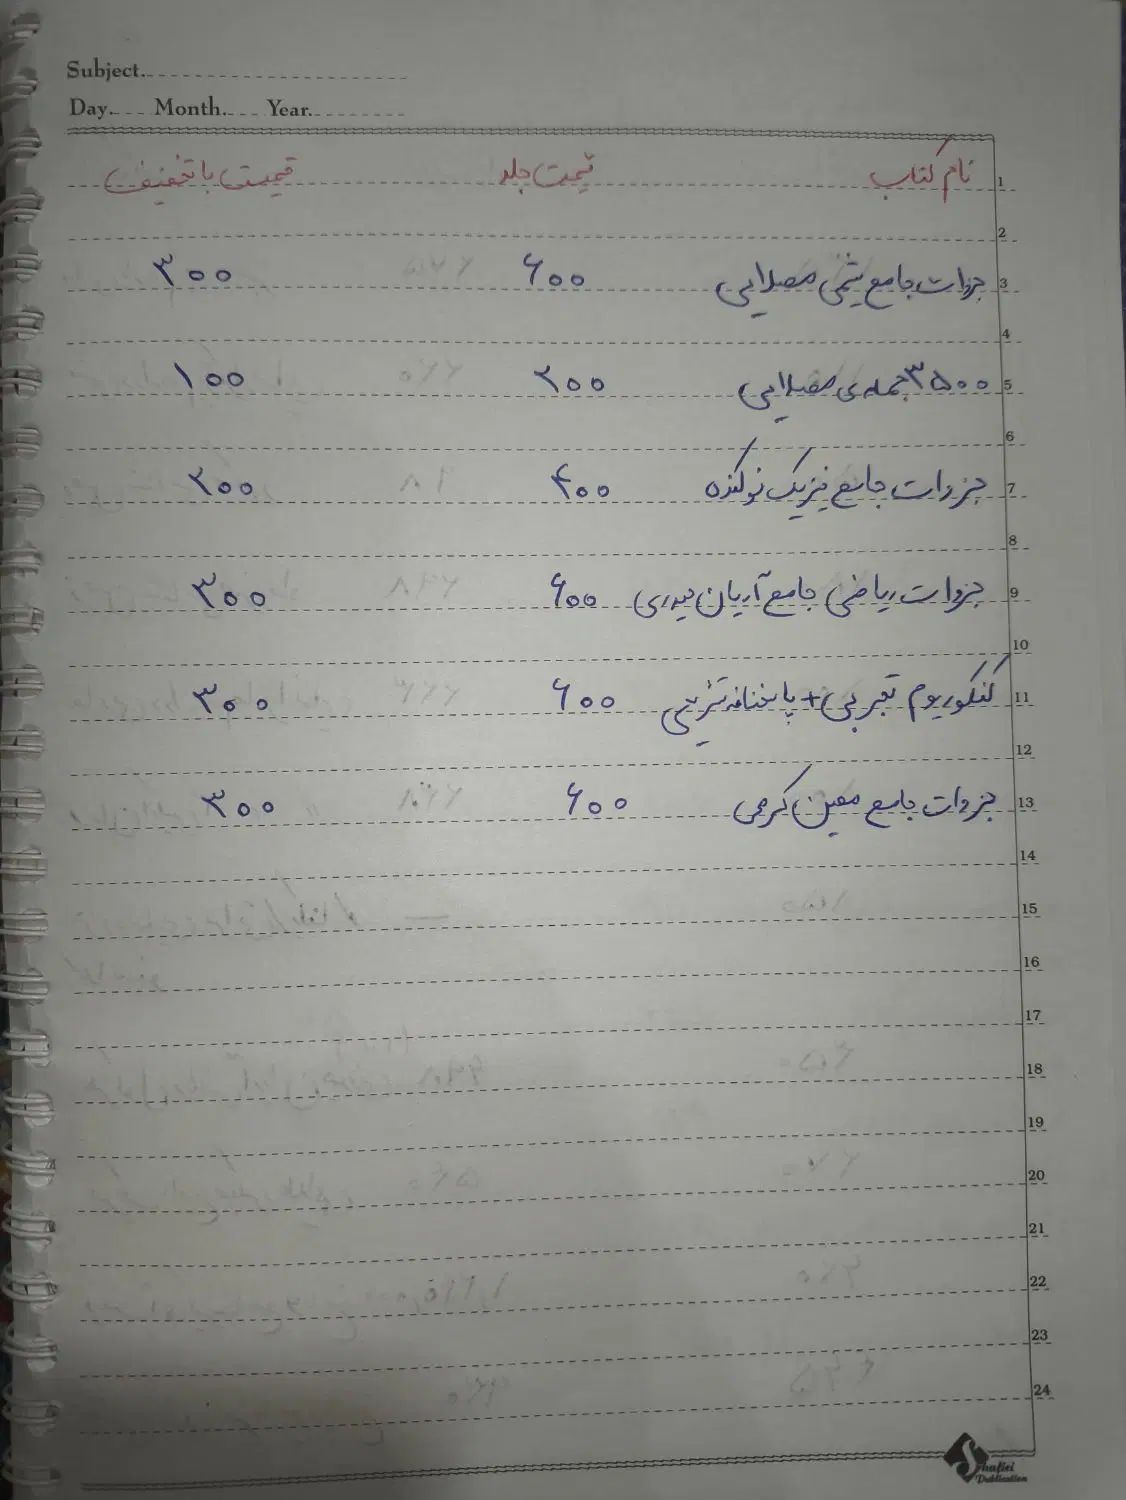 Subject.
Day. Month. Year.
نام کتاب قیمت جلد قیمت با تخفیف
1
2
3 جزوات جامع شیمی مصلایی ۶۰۰ ۳۰۰
4
5 ۳۵۰۰ جمله‌ی مصلایی ۲۰۰ ۱۰۰
6
7 جزوات جامع فیزیک نوکنده ۴۰۰ ۲۰۰
8
9 جزوات ریاضی جامع آریان حیدری ۶۰۰ ۳۰۰
10
11 کنکوریوم تجربی + پاسخنامه تشریحی ۶۰۰ ۳۰۰
12
13 جزوات جامع معین کرمی ۶۰۰ ۳۰۰
14
15
16
17
18
19
20
21
22
23
24
Shafiei
Publication